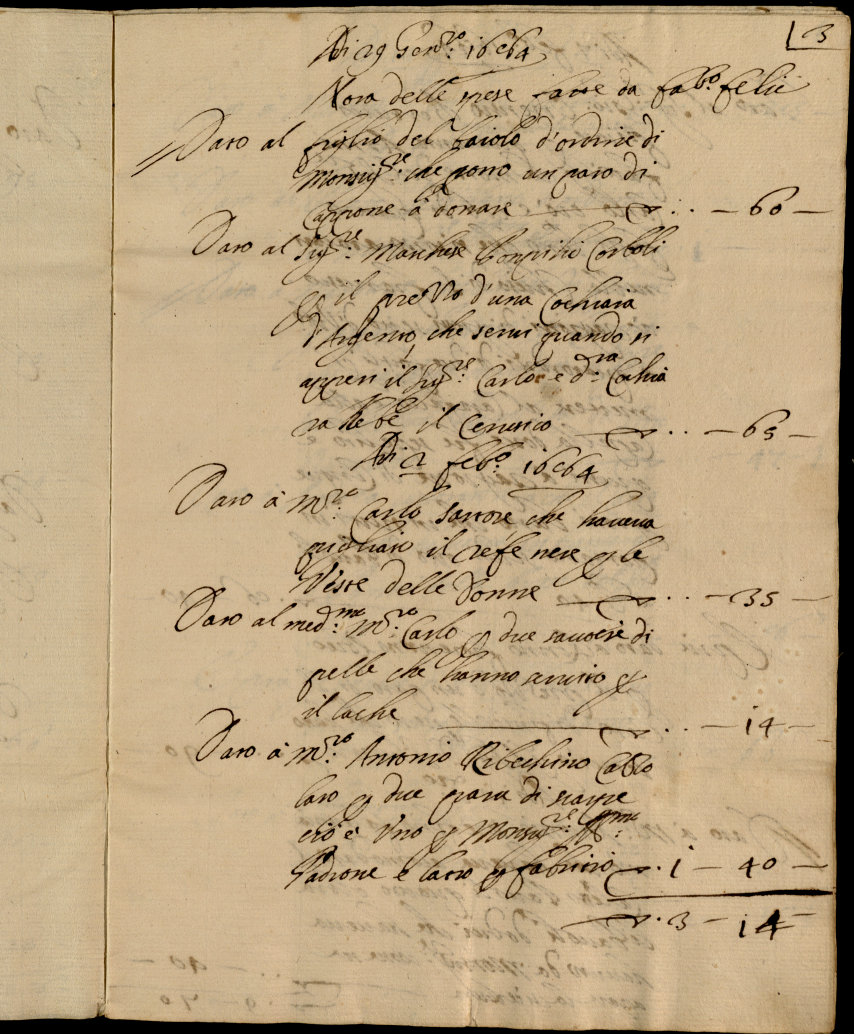 3
Adi 29 Gen.ro 1664
Nota delle spese fatte da Fab.o Felici
Dato al figlio del baiolo d'ordine di
Monsig.re che portò un paro di
Cappone à donare — 60 —
Dato al Sig.re Marchese Pompilio
il prezzo d'una Cochiara
d'Argento, che servì quando si
il Sig.re Carlo e d.ra Cochia
ra hebe il Cerusico — 65 —
Adi 2 feb.o 1664
Dato à m.ro Carlo sartore che haveva
pigliato il refe nere p le
Veste delle Donne — 35 —
Dato al med.mo m.ro Carlo p due di
pelle che hanno servito p
il lache — 14 —
Dato à m.ro Antonio Ribechino Calzo
laro p due para di scarpe
cioè Uno p Monsig.re Ill.mo
Padrone e latro p Fabritio 1 — 40 —
3 — 14 —